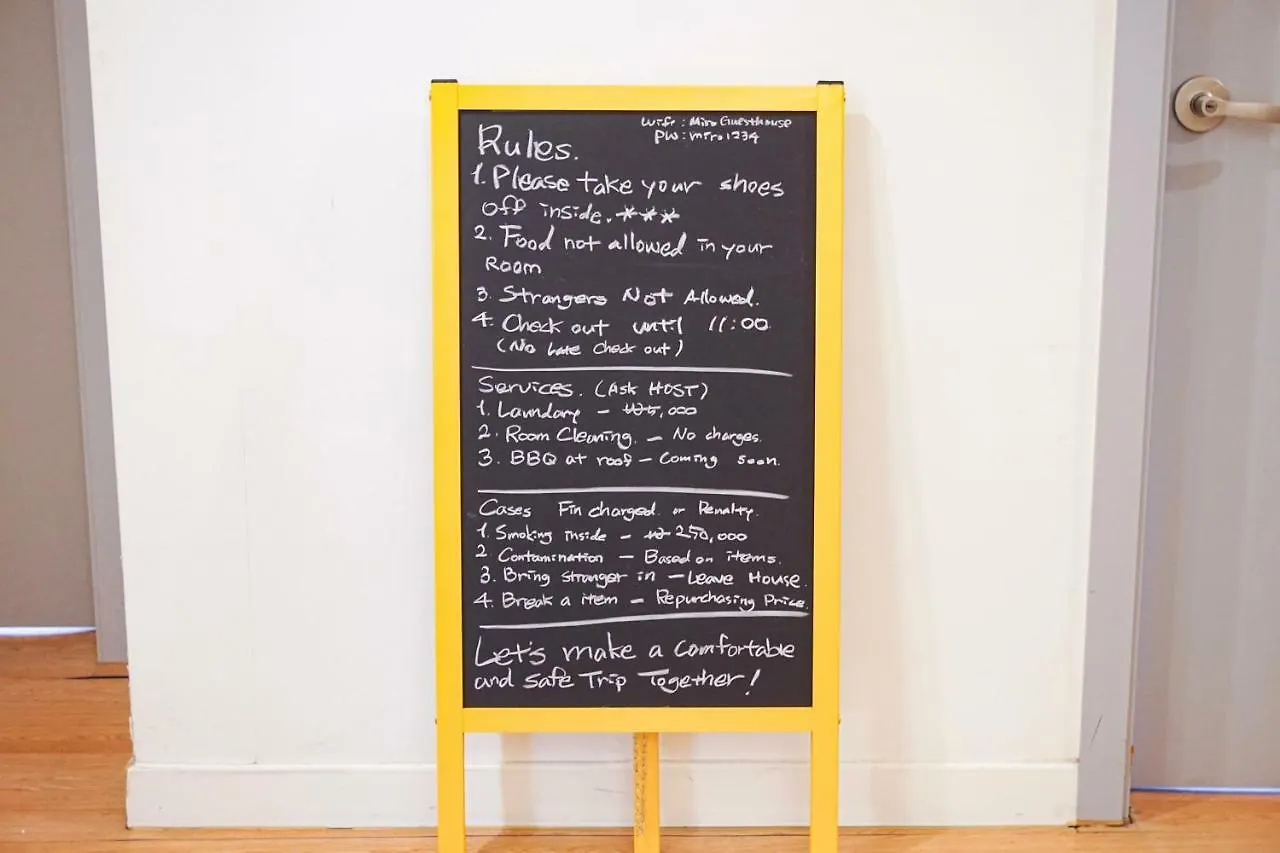 Wifi : Miro Guesthouse
PW : miro1234
Rules.
1. Please take your shoes
off inside. ***
2. Food not allowed in your
Room
3. Strangers Not Allowed.
4. Check out until 11:00
(No Late Check out)
Services. (Ask HOST)
1. Laundary - ₩5,000
2. Room Cleaning. - No charges.
3. BBQ at roof - Coming soon.
Cases Fin charged. or Penalty.
1. Smoking inside - ₩ 250,000
2. Contamination - Based on items.
3. Bring stranger in - Leave House.
4. Break a item - Repurchasing Price.
Let's make a comfortable
and safe Trip Together!